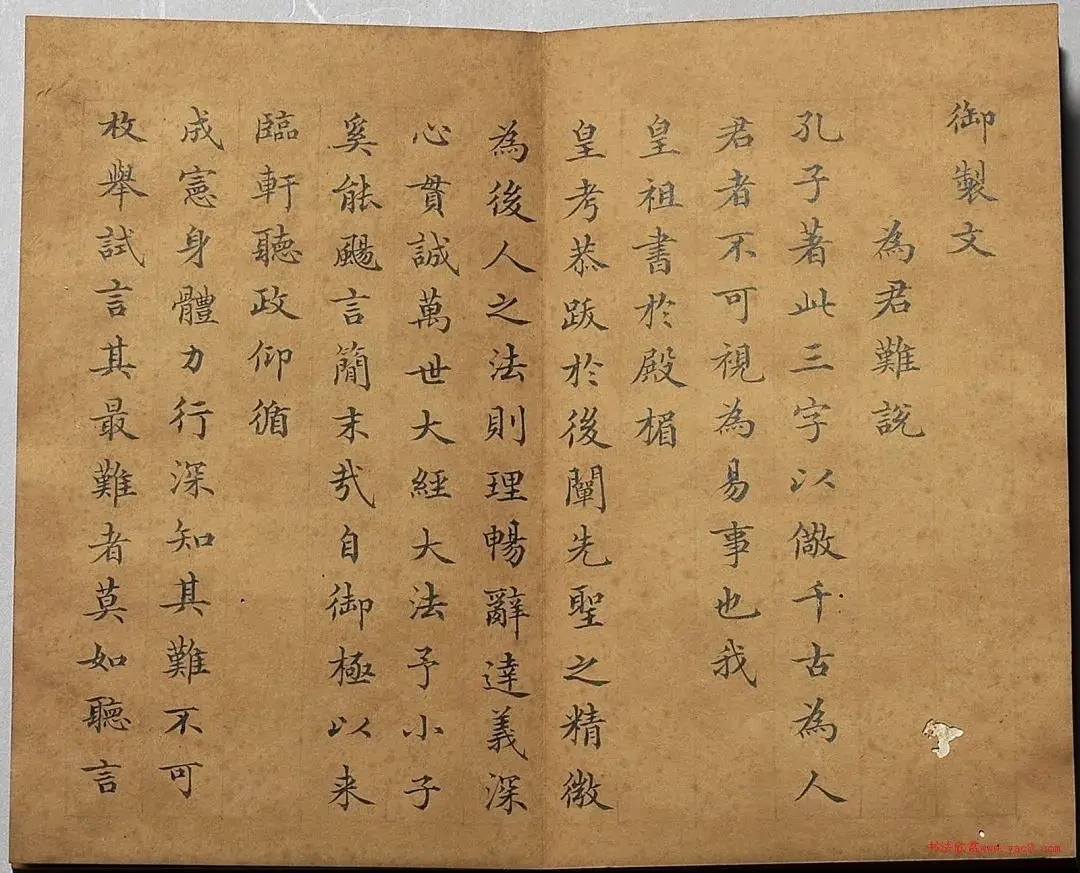 御製文
為君難說
孔子著此三字以儆千古為人
君者不可視為易事也我
皇祖書於殿楣
皇考恭跋於後闡先聖之精微
為後人之法則理暢辭達義深
心貫誠萬世大經大法予小子
奚能颺言簡末哉自御極以来
臨軒聽政仰循
成憲身體力行深知其難不可
枚舉試言其最難者莫如聽言
书法欣赏www.yac8.com